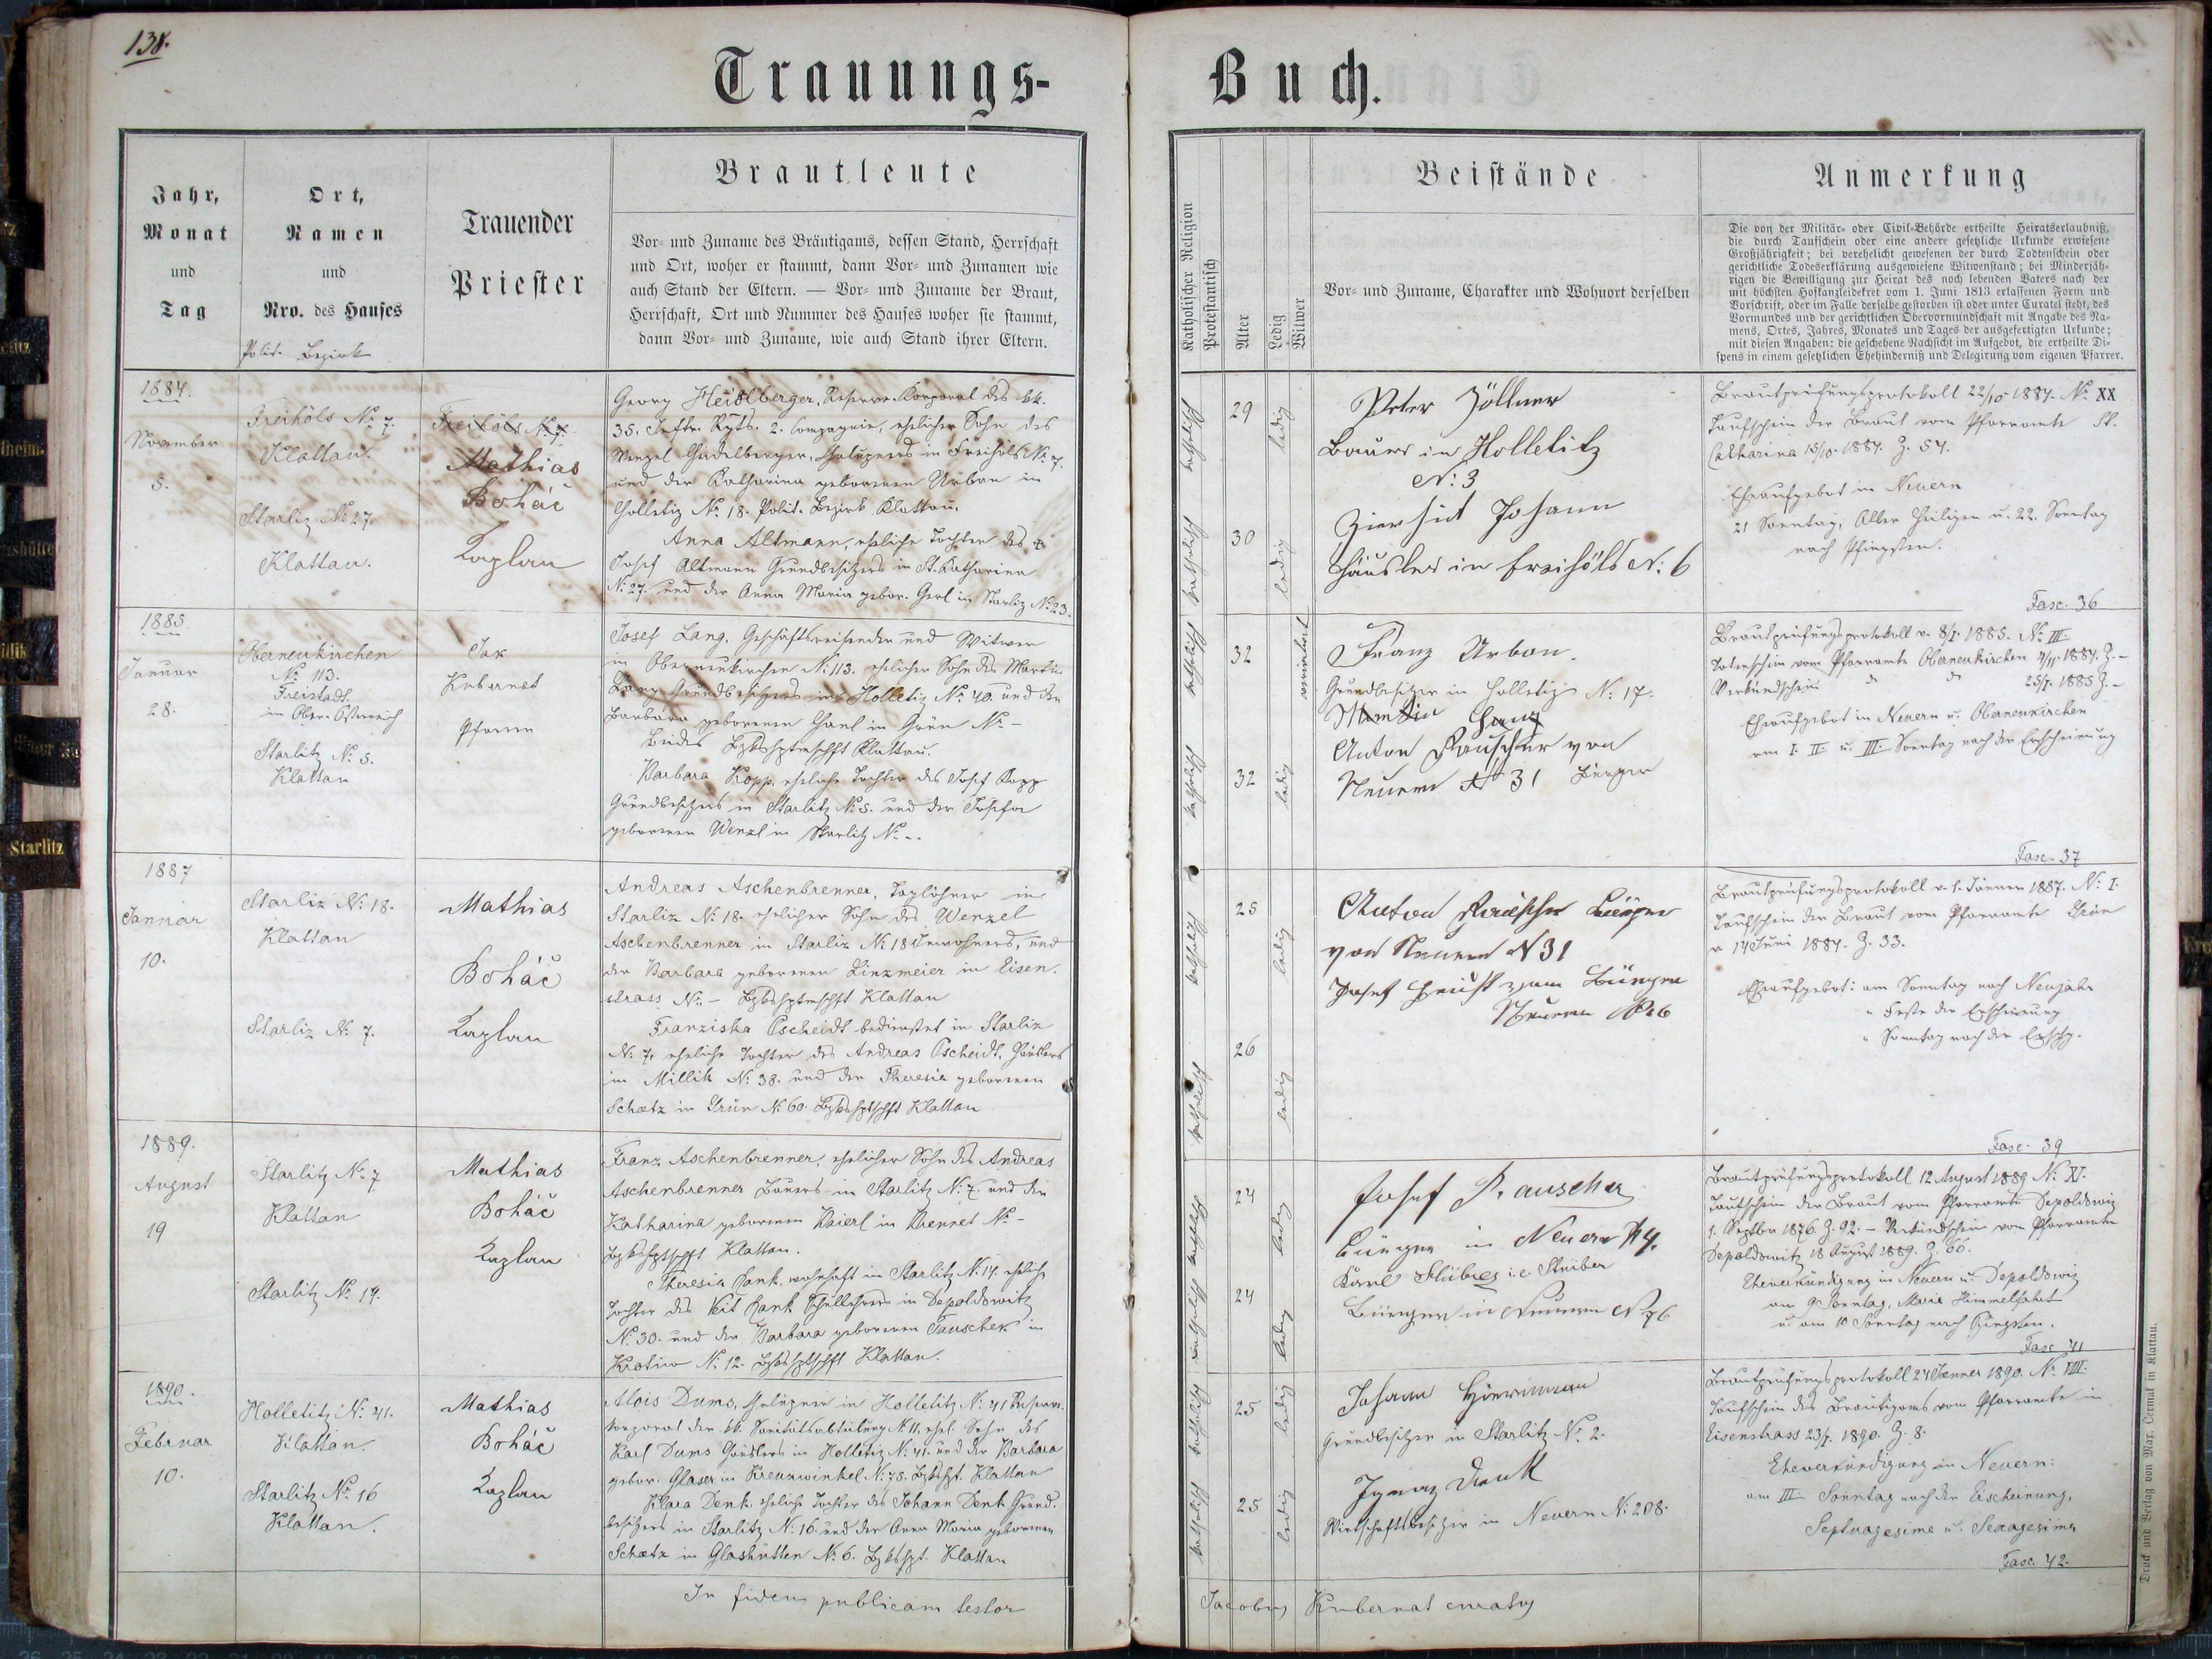 138.
Trauungs-
Jahr,
Monat
und
Tag
Ort,
Namen
und
Nro. des Hauses
Polit. Bezirk
Trauender
Priester
Brautleute
Vor- und Zuname des Bräutigams, dessen Stand, Herrschaft
und Ort, woher er stammt, dann Vor- und Zunamen wie
auch Stand der Eltern. — Vor- und Zuname der Braut,
Herrschaft, Ort und Nummer des Hauses woher sie stammt,
dann Vor- und Zuname, wie auch Stand ihrer Eltern.
1884.
November
5.
Freihöls No 7.
Klattau.
Starliz No 27.
Klattau.
Freihöls No 7.
Mathias
Boháč
Kaplan
Georg Heidlberger, Reserve-Korporal des kk.
35. Inftr. Rgts. 2. Compagnie, ehelicher Sohn des
Wenzel Haidelberger, Chalupners in Freihöls No 7.
und der Katharina geborenen Urban in
Holletiz No 18. Polit. Bezirk Klattau.
Anna Altmann, eheliche Tochter des
Josef Altmann Grundbesitzers in St. Katharina
No 27. und der Anna Maria gebor. Gerl in Starliz No 23.
1885.
Januar
28.
Oberneukirchen
No 113.
Freistadt
in Ober-Österreich
Starlitz No 5.
Klattau
Jak
Kubernat
Pfarrer
Josef Lang, Geschäftsreisender und Witwer
in Oberneukirchen No 113. ehelicher Sohn des Martin
Lang Grundbesitzers in Holletiz No 40. und der
Barbara geborenen Hanl in Grün No –
Beides Bzkshptmschft Klattau.
Barbara Kopp, eheliche Tochter des Josef Kopp
Grundbesitzers in Starlitz No 5. und der Josefa
geborenen Wenzl in Starlitz No –.
1887
Januar
10.
Starliz No 18.
Klattau
Starliz No 7.
Mathias
Boháč
Kaplan
Andreas Aschenbrenner, Taglöhner in
Starliz No 18. ehelicher Sohn des Wenzel
Aschenbrenner in Starliz No 18 Inwohners, und
der Barbara geborenen Linzmeier in Eisen-
strass No – Bzkshptmschft Klattau
Franziska Pscheidt bedienstet in Starliz
No 7, eheliche Tochter des Andreas Pscheidt, Häuslers
in Millik No 38. und der Theresia geborenen
Schatz in Grün No 60. Bzkshptschft Klattau
1889.
August
19
Starlitz No 7
Klattau
Starlitz No 14.
Mathias
Boháč
Kaplan
Franz Aschenbrenner, ehelicher Sohn des Andreas
Aschenbrenner Bauers in Starlitz No 7. und der
Katharina geborenen Baierl in Brennet No –
Bzkshptschft Klattau.
Theresia Hank, wohnhaft in Starlitz No 14. eheliche
Tochter des Veit Hank Schullehrers in Depoldowitz
No 30. und der Barbara geborenen Pauschek in
Krotiw No 12. Bzkshptschft Klattau.
1890.
Februar
10.
Holletitz No 41.
Klattau.
Starlitz No 16
Klattau.
Mathias
Boháč
Kaplan
Alois Dums, Chalupner in Holletitz No 41 Reserve-
korporal der kk. Sanitätsabteilung No 11. ehel. Sohn des
Karl Dums Häuslers in Holletitz No 41. und der Barbara
gebor. Glaser in Kreuzwinkel No 75. Bzkshpt. Klattau
Klara Denk, eheliche Tochter des Johann Denk Grund-
besitzers in Starlitz No 16. und der Anna Maria geborenen
Schatz in Glashütten No 6. Bzkshpt. Klattau
In fidem publicam testor
Buch.
Katholischer Religion
Protestantisch
Alter
Ledig
Witwer
Beistände
Vor- und Zuname, Charakter und Wohnort derselben
Anmerkung
Die von der Militär- oder Civil-Behörde ertheilte Heiratserlaubniß,
die durch Taufschein oder eine andere gesetzliche Urkunde erwiesene
Großjährigkeit; bei verehelicht gewesenen der durch Todtenschein oder
gerichtliche Todeserklärung ausgewiesene Witwenstand; bei Minderjäh-
rigen die Bewilligung zur Heirat des noch lebenden Vaters nach der
mit höchsten Hofkanzleidekret vom 1. Juni 1813 erlassenen Form und
Vorschrift, oder im Falle derselbe gestorben ist oder unter Curatel steht, des
Vormundes und der gerichtlichen Obervormundschaft mit Angabe des Na-
mens, Ortes, Jahres, Monates und Tages der ausgefertigten Urkunde;
mit diesen Angaben: die geschehene Nachsicht im Aufgebot, die ertheilte Di-
spens in einem gesetzlichen Ehehinderniß und Delegirung vom eigenen Pfarrer.
katholisch 29 ledig
katholisch 30 ledig
Peter Zöllner
Bauer in Holletitz
N: 3
Zierhut Johann
Häusler in Freihöls N: 6
Brautprüfungsprotokoll 22/10 1884. No XX
Taufschein der Braut vom Pfarramte St.
Catharina 15/10. 1884. Z. 54.
Eheaufgebot in Neuern
21 Sonntag, Aller Heiligen u. 22. Sonntag
nach Pfingsten.
Fasc. 36
katholisch 32 verwitwet
katholisch 32 ledig
Franz Urban.
Grundbesitzer in Holletiz No 17.
Anton Rauscher von
Neuern No 31 Bürger
Brautprüfungsprotokoll v. 8/I. 1885. No III.
Totenschein vom Pfarramte Oberneukirchen 4/11. 1884. Z. –
Verkündschein do do 25/I. 1885 Z. –
Eheaufgebot in Neuern u. Oberneukirchen
am I. II. u. III. Sonntag nach der Erscheinung
Fasc. 37
katholisch 25 ledig
katholisch 26 ledig
Anton Rauscher Bürger
von Neuern N 31
Josef Bürger
Neuern No 26
Brautprüfungsprotokoll v. 1. Jänner 1887. No I.
Taufschein der Braut vom Pfarramte Grün
v 14 Juni 1884. Z. 33.
Eheaufgebot: am Sonntag nach Neujahr
" Feste der Erscheinung
" Sonntag nach der Erschg.
Fasc. 39
katholisch 24 ledig
katholisch 24 ledig
Josef Rauscher
Bürger in Neuern No 4.
Karl Stüber i.e. Steiber
Bürger in Neuern No 76
Brautprüfungsprotokoll 12 August 1889 No XI.
Taufschein der Braut vom Pfarramte Depoldowiz
1. Septber 1876. Z. 92. – Verkündschein vom Pfarramte
Depoldowitz 18 August 1889. Z. 66.
Eheverkündigung in Neuern u. Depoldowiz
am 9 Sonntag, Maria Himmelfahrt
u. am 10 Sonntag nach Pfingsten.
Fasc 41
katholisch 25 ledig
katholisch 25 ledig
Johann
Grundbesitzer in Starlitz No 2.
Ignaz Denk
Wirtschaftsbesitzer in Neuern No 208.
Brautprüfungsprotokoll 24 Jänner 1890. No VIII.
Taufschein des Bräutigams vom Pfarramte in
Eisenstrass 23/I. 1890. Z. 8.
Eheverkündigung in Neuern:
am III. Sonntag nach der Erscheinung,
Septuagesime u. Sexagesime
Fasc. 42.
Jacobus Kubernat curatus
Druck und Verlag von Max. Čermak in Klattau.
Starlitz